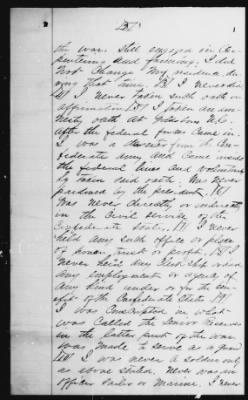 the war. Still engaged in Car-
pentering and farming. I did
not change my residence du
ring that time. I never did
I never taken such oath or
affirmation. I taken an am-
nesty oath at N.C.
after the federal forces came in
I was a from the Con-
federate army and came inside
the federal lines and voluntarily
taken such oath. Was never
pardoned by the president.
Was never directly or indirectly
in the Civil Service of the
Confederate States. I never
held any such office or place
of honor, trust or profit.
never held any clerkship or had
any employment or agency of
any kind under or for the ben-
efit of the Confederate States
I was Conscripted in what
was called the Senior Reserves
in the latter part of the war.
Was made to serve as a guard
I was never a soldier only
as above stated. Never was an
officer sailor or marine. I never